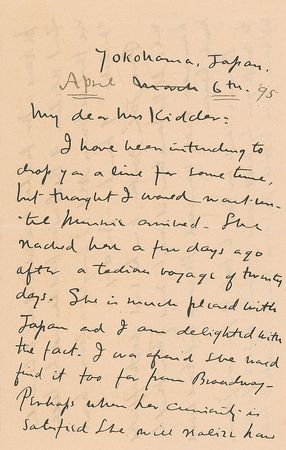 Yokohama, Japan.
April March 6th. 95
My dear Mrs Kidder:
I have been intending to
drop you a line for some time,
but thought I would wait un-
til Minnie arrived. She
reached here a few days ago
after a tedious voyage of twenty
days. She is much pleased with
Japan and I am delighted with
the fact. I was afraid she would
find it too far from Broadway-
Perhaps when her curiosity is
satisfied she will realize how